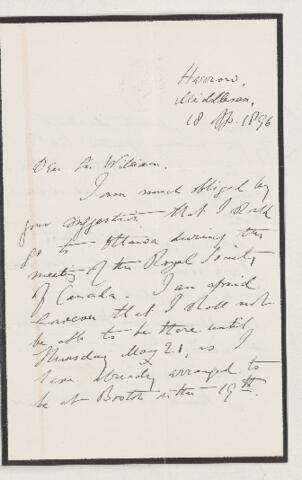 Harrow,
Middlesex,
18 Apr. 1896
Dear Sir William.
I am much obliged by
your suggestion that I shall
go to Ottawa during the
meeting of the Royal Society
of Canada. I am afraid
however that I shall not
be able to be there until
Thursday May 21, as I
have already arranged to
be at Boston on the 19th.